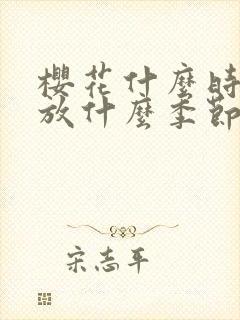 櫻花什麼時
放什麼季節
宋志平